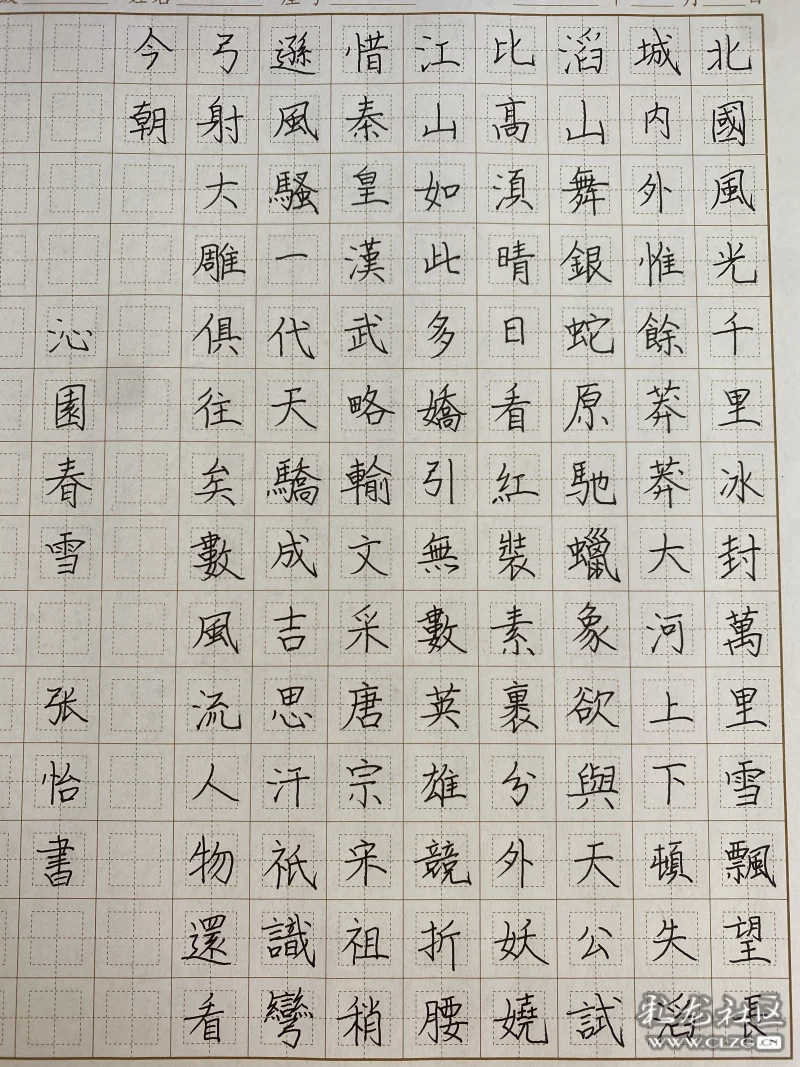 北國風光千里冰封萬里雪飄望長
城内外惟餘莽莽大河上下頓失滔
滔山舞銀蛇原馳蠟象欲與天公試
比高湏晴日看紅裝素裹分外妖嬈
江山如此多嬌引無數英雄競折腰
惜秦皇漢武略輸文采唐宗宋祖稍
遜風騷一代天驕成吉思汗祇識彎
弓射大雕俱往矣數風流人物還看
今朝
沁園春雪 张怡書
彩龙社区
WWW.CLZG.CN